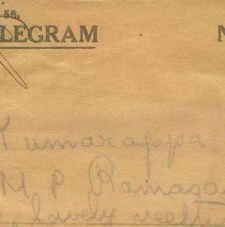 58.
LEGRAM N
Kumarappa
M P Ramasa
lovely